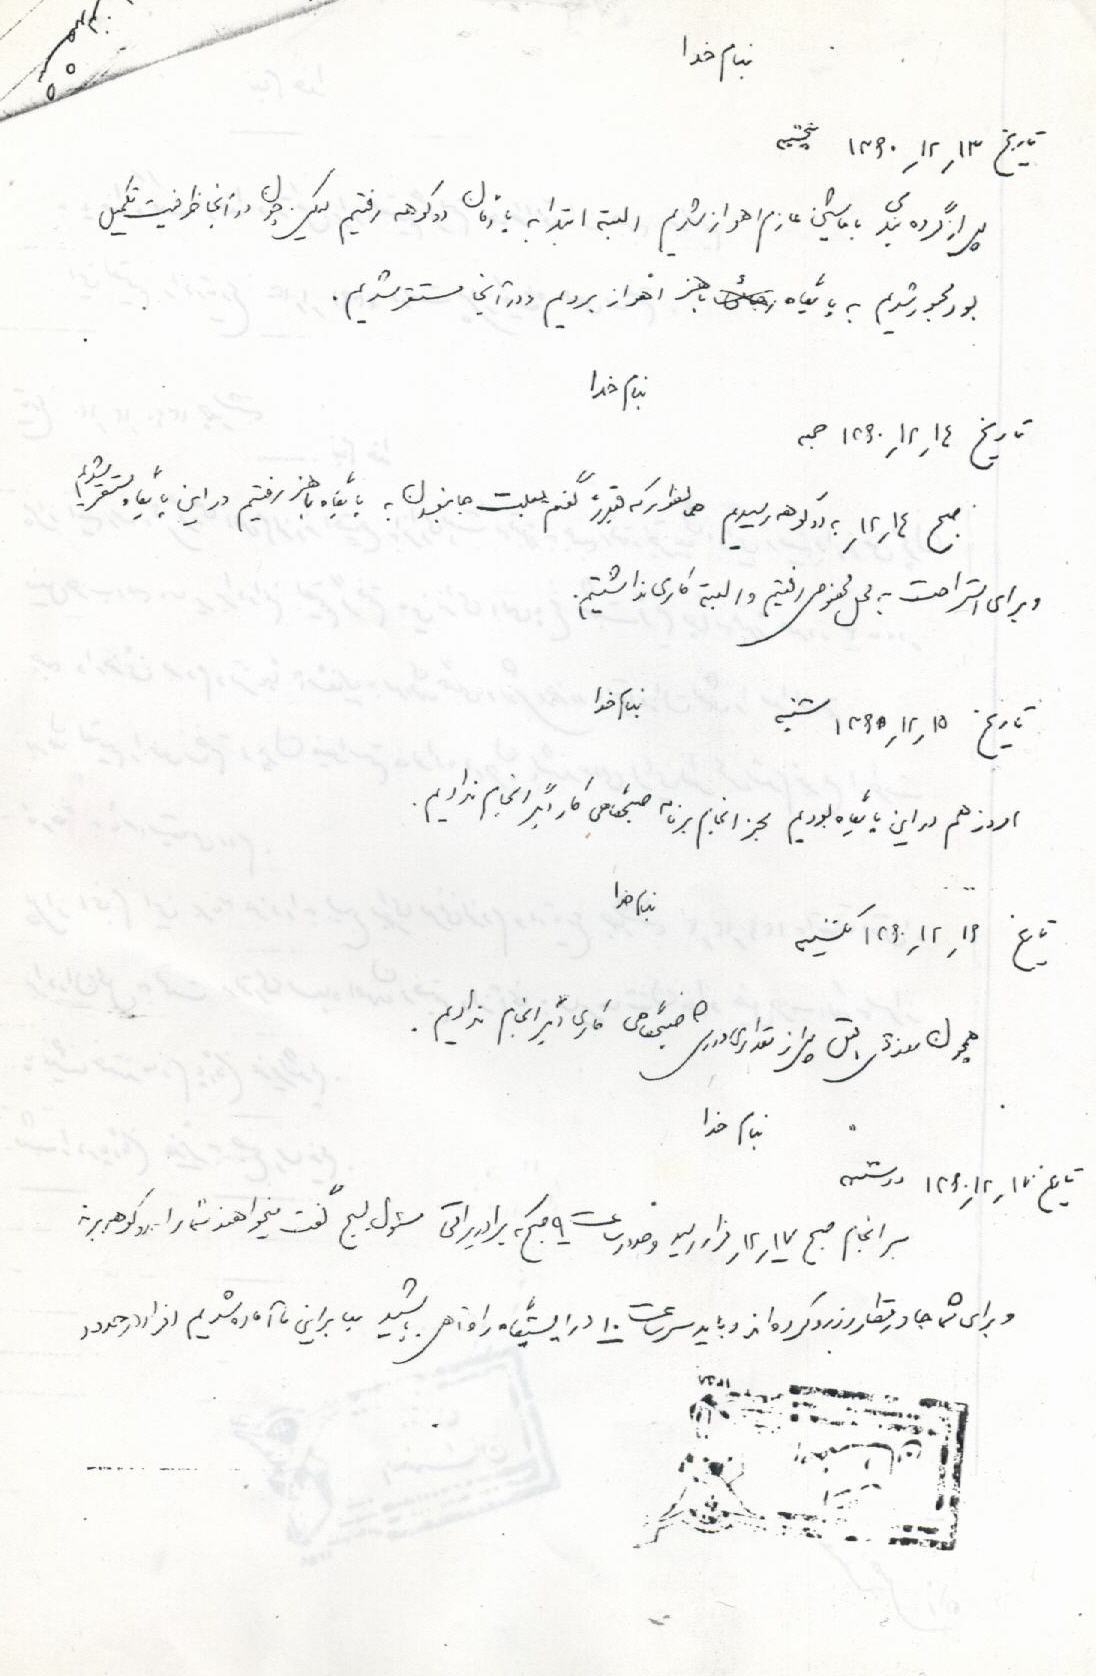 بنام خدا
تاریخ ۱۳ر۱۲ر۱۳۶۰ پنجشنبه
پس از گروه بندی با ماشین عازم اهواز شدیم البته ابتدا به پادگان دوکوهه رفتیم لیکن چون در آنجا ظرفیت تکمیل
بود مجبور شدیم به پایگاه باهنر اهواز برویم و در آنجا مستقر شدیم.
بنام خدا
تاریخ ۱٤ر۱۲ر۱۳۶۰ جمعه
صبح ۱٤ر۱۲ر به دوکوهه رسیدیم همانطور که قبلاً گفتم بعلت جا نبودن به پایگاه باهنر رفتیم در این پایگاه مستقر شدیم
و برای استراحت به محل مخصوص رفتیم و البته کاری نداشتیم.
بنام خدا
تاریخ ۱۵ر۱۲ر۱۳۶۰ شنبه
امروز هم در این پایگاه بودیم بجز انجام برنامه صبحگاهی کار دیگر انجام ندادیم.
بنام خدا
تاریخ ۱۶ر۱۲ر۱۳۶۰ یکشنبه
همچون روزهای قبل پس از مقداری ورزش صبحگاهی کاری دیگر انجام ندادیم.
بنام خدا
تاریخ ۱۷ر۱۲ر۱۳۶۰ دوشنبه
سرانجام صبح ۱۷ر۱۲ر فرا رسید و حدود ساعت ۹ صبح که برادر براتی مسئول بسیج گفت میخواهند شما را به دوکوهه برند
و برای شما جا در قطار رزرو کرده‌اند و باید سر ساعت ۱۰ در ایستگاه راه‌آهن باشید بنابراین ما آماده شدیم افراد در حدود